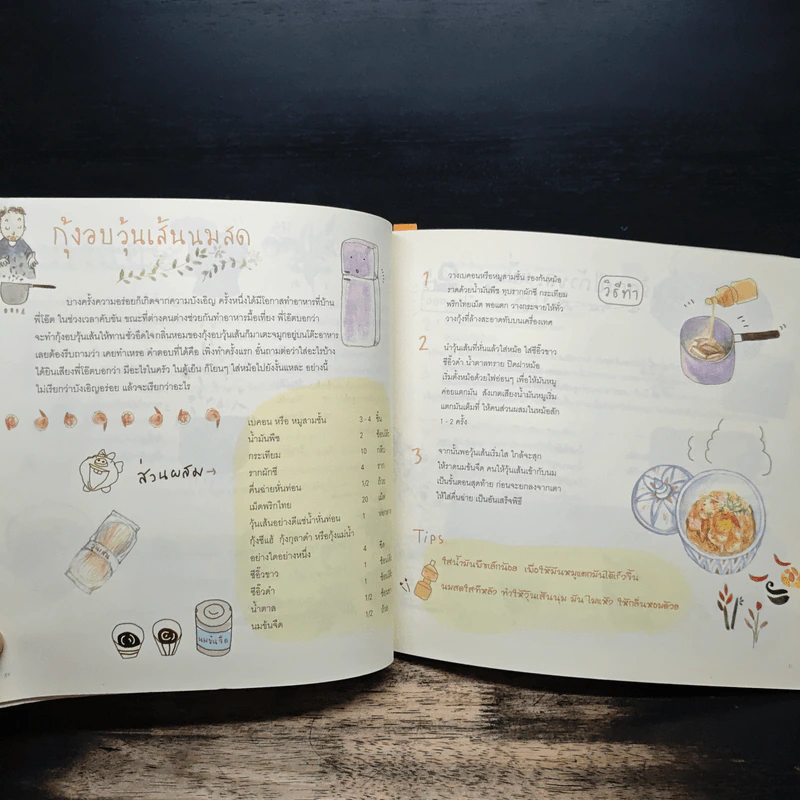 กุ้งอบวุ้นเส้นนมสด
บางครั้งความอร่อยก็เกิดจากความบังเอิญ ครั้งหนึ่งได้มีโอกาสทำอาหารที่บ้าน
พี่โอ๊ต ในช่วงเวลาคับขัน ขณะที่ต่างคนต่างช่วยกันทำอาหารมื้อเที่ยง พี่โอ๊ตบอกว่า
จะทำกุ้งอบวุ้นเส้นให้ทานชั่วอึดใจกลิ่นหอมของกุ้งอบวุ้นเส้นก็มาเตะจมูกอยู่บนโต๊ะอาหาร
เลยต้องรีบถามว่า เคยทำเหรอ คำตอบที่ได้คือ เพิ่งทำครั้งแรก อั๋นถามต่อว่าใส่อะไรบ้าง
ได้ยินเสียงพี่โอ๊ตบอกว่า มีอะไรในครัว ในตู้เย็น ก็โยนๆ ใส่หม้อไปยังงั้นแหละ อย่างนี้
ไม่เรียกว่าบังเอิญอร่อย แล้วจะเรียกว่าอะไร
ส่วนผสม
เบคอน หรือ หมูสามชั้น 3 - 4 ชิ้น
น้ำมันพืช 2 ช้อนโต๊ะ
กระเทียม 10 กลีบ
รากผักชี 4 ราก
คื่นฉ่ายหั่นท่อน 1/2 ถ้วย
เม็ดพริกไทย 20 เม็ด
วุ้นเส้นอย่างดีแช่น้ำหั่นท่อน 1
กุ้งชีแฮ้ กุ้งกุลาดำ หรือกุ้งแม่น้ำ
อย่างใดอย่างหนึ่ง 4 ขีด
ซีอิ๊วขาว 1 ช้อนโต๊ะ
ซีอิ๊วดำ 1
น้ำตาล 1/2
นมข้นจืด 1/2 ถ้วย
วุ้นเส้น
นมข้นจืด
วิธีทำ
1 วางเบคอนหรือหมูสามชั้น รองก้นหม้อ
ราดด้วยน้ำมันพืช ทุบรากผักชี กระเทียม
พริกไทยเม็ด พอแตก วางกระจายให้ทั่ว
วางกุ้งที่ล้างสะอาดทับบนเครื่องเทศ
2 นำวุ้นเส้นที่หั่นแล้วใส่หม้อ ใส่ซีอิ๊วขาว
ซีอิ๊วดำ น้ำตาลทราย ปิดฝาหม้อ
เริ่มตั้งหม้อด้วยไฟอ่อนๆ เพื่อให้มันหมู
ค่อยแตกมัน สังเกตเสียงน้ำมันหมูเริ่ม
แตกมันเต็มที่ ให้คนส่วนผสมในหม้อสัก
1 - 2 ครั้ง
3 จากนั้นพอวุ้นเส้นเริ่มใส ใกล้จะสุก
ให้ราดนมข้นจืด คนให้วุ้นเส้นเข้ากับนม
เป็นขั้นตอนสุดท้าย ก่อนจะยกลงจากเตา
ให้ใส่คื่นฉ่าย เป็นอันเสร็จพิธี
Tips
ใส่น้ำมันพืชเล็กน้อย เพื่อให้มันหมูแตกมันได้เร็วขึ้น
นมสดใส่ทีหลัง ทำให้วุ้นเส้นนุ่ม มัน ไม่แห้ว ให้กลิ่นหอมด้วย